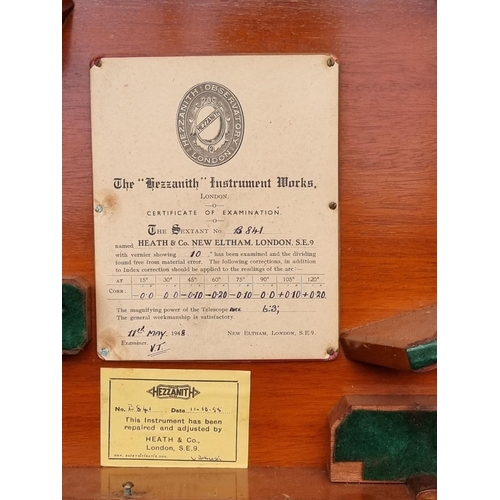 HEZZANITH OBSERVATORY
HEZZANITH
LONDON
The "Hezzanith" Instrument Works,
LONDON.
CERTIFICATE OF EXAMINATION.
THE SEXTANT No. B841
named HEATH & Co. NEW ELTHAM, LONDON, S.E.9
with vernier showing 10 " has been examined and the dividing
found free from material error. The following corrections, in addition
to Index correction should be applied to the readings of the arc:—
AT 15° 30° 45° 60° 75° 90° 105° 120°
CORR: -0 0 -0 0 -0 10 -0 20 -0 10 -0 0 +0 10 +0 20
The magnifying power of the Telescope 6.3;
The general workmanship is satisfactory.
11th MAY. 1948. NEW ELTHAM, LONDON, S.E.9.
Examiner,
HEZZANITH
No. B841 Date 11-10-55
This Instrument has been
repaired and adjusted by
HEATH & Co.,
London, S.E.9.